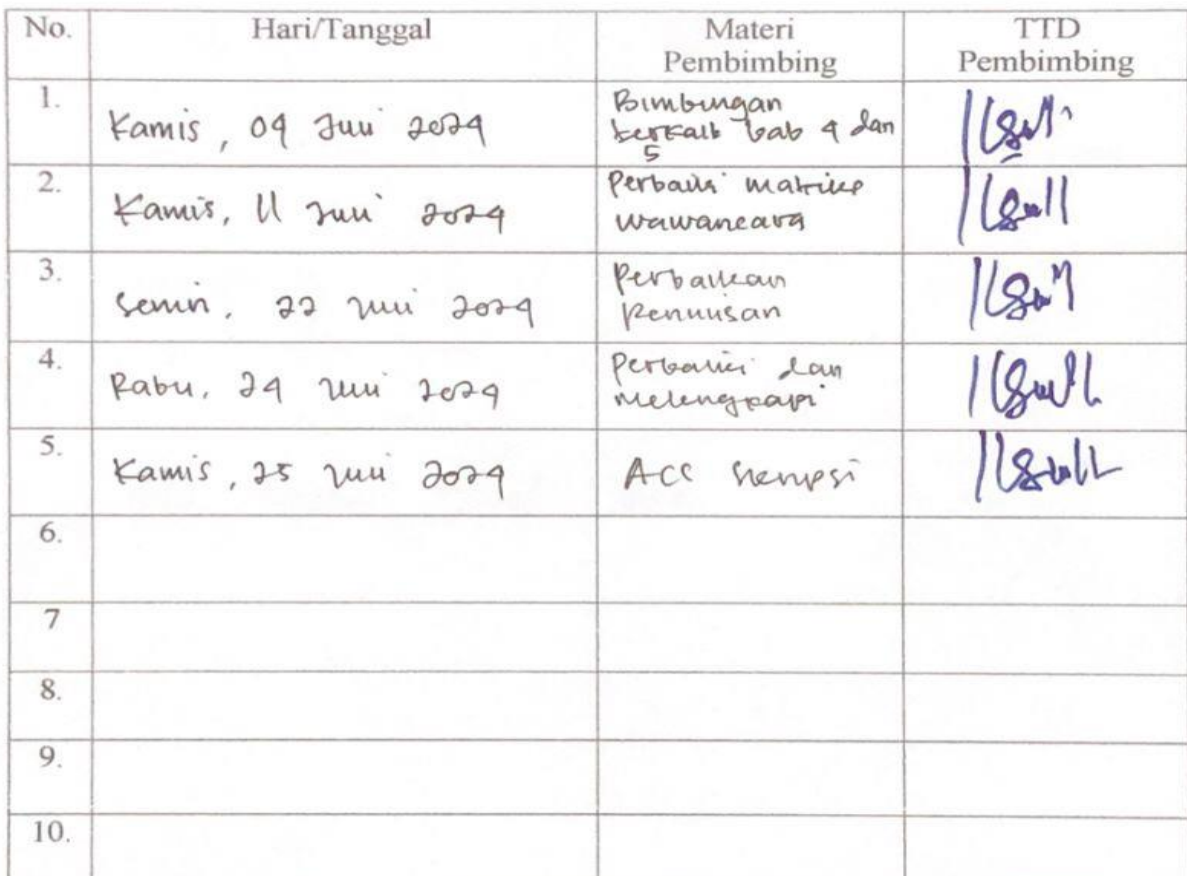 No.
Hari/Tanggal
Materi
Pembimbing
TTD
Pembimbing
1.
Kamis, 04 Juli 2024
Bimbingan
terkait bab 4 dan
5
2.
Kamis, 11 Juli 2024
Perbaiki matriks
wawancara
3.
Senin, 22 Juli 2024
Perbaikan
Penulisan
4.
Rabu, 24 Juli 2024
Perbaiki dan
melengkapi
5.
Kamis, 25 Juli 2024
ACC skripsi
6.
7
8.
9.
10.